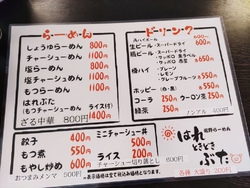 らーめん
しょうゆらーめん 800円
チャーシューめん 1100円
塩らーめん 800円
塩チャーシューめん 1100円
もつらーめん 1100円
はれぶた
(もつチャーシューめん ライス付)
ざる中華 800円 1400円
餃子 400円
もつ煮 550円
もやし炒め 600円
おつまみメンマ 500円
ミニチャーシュー丼 500円
ライス 200円
チャーシュー切り落とし
ドリンク
生ビール・スーパードライ 600円
瓶ビール・スーパードライ
酎ハイ
・レモン
・グレープフルーツ 550円
ホッピー(白・黒) 550円
コーラ 250円 ウーロン茶 250円
緑茶 250円 ノンアル 400円
はれときどきぶた